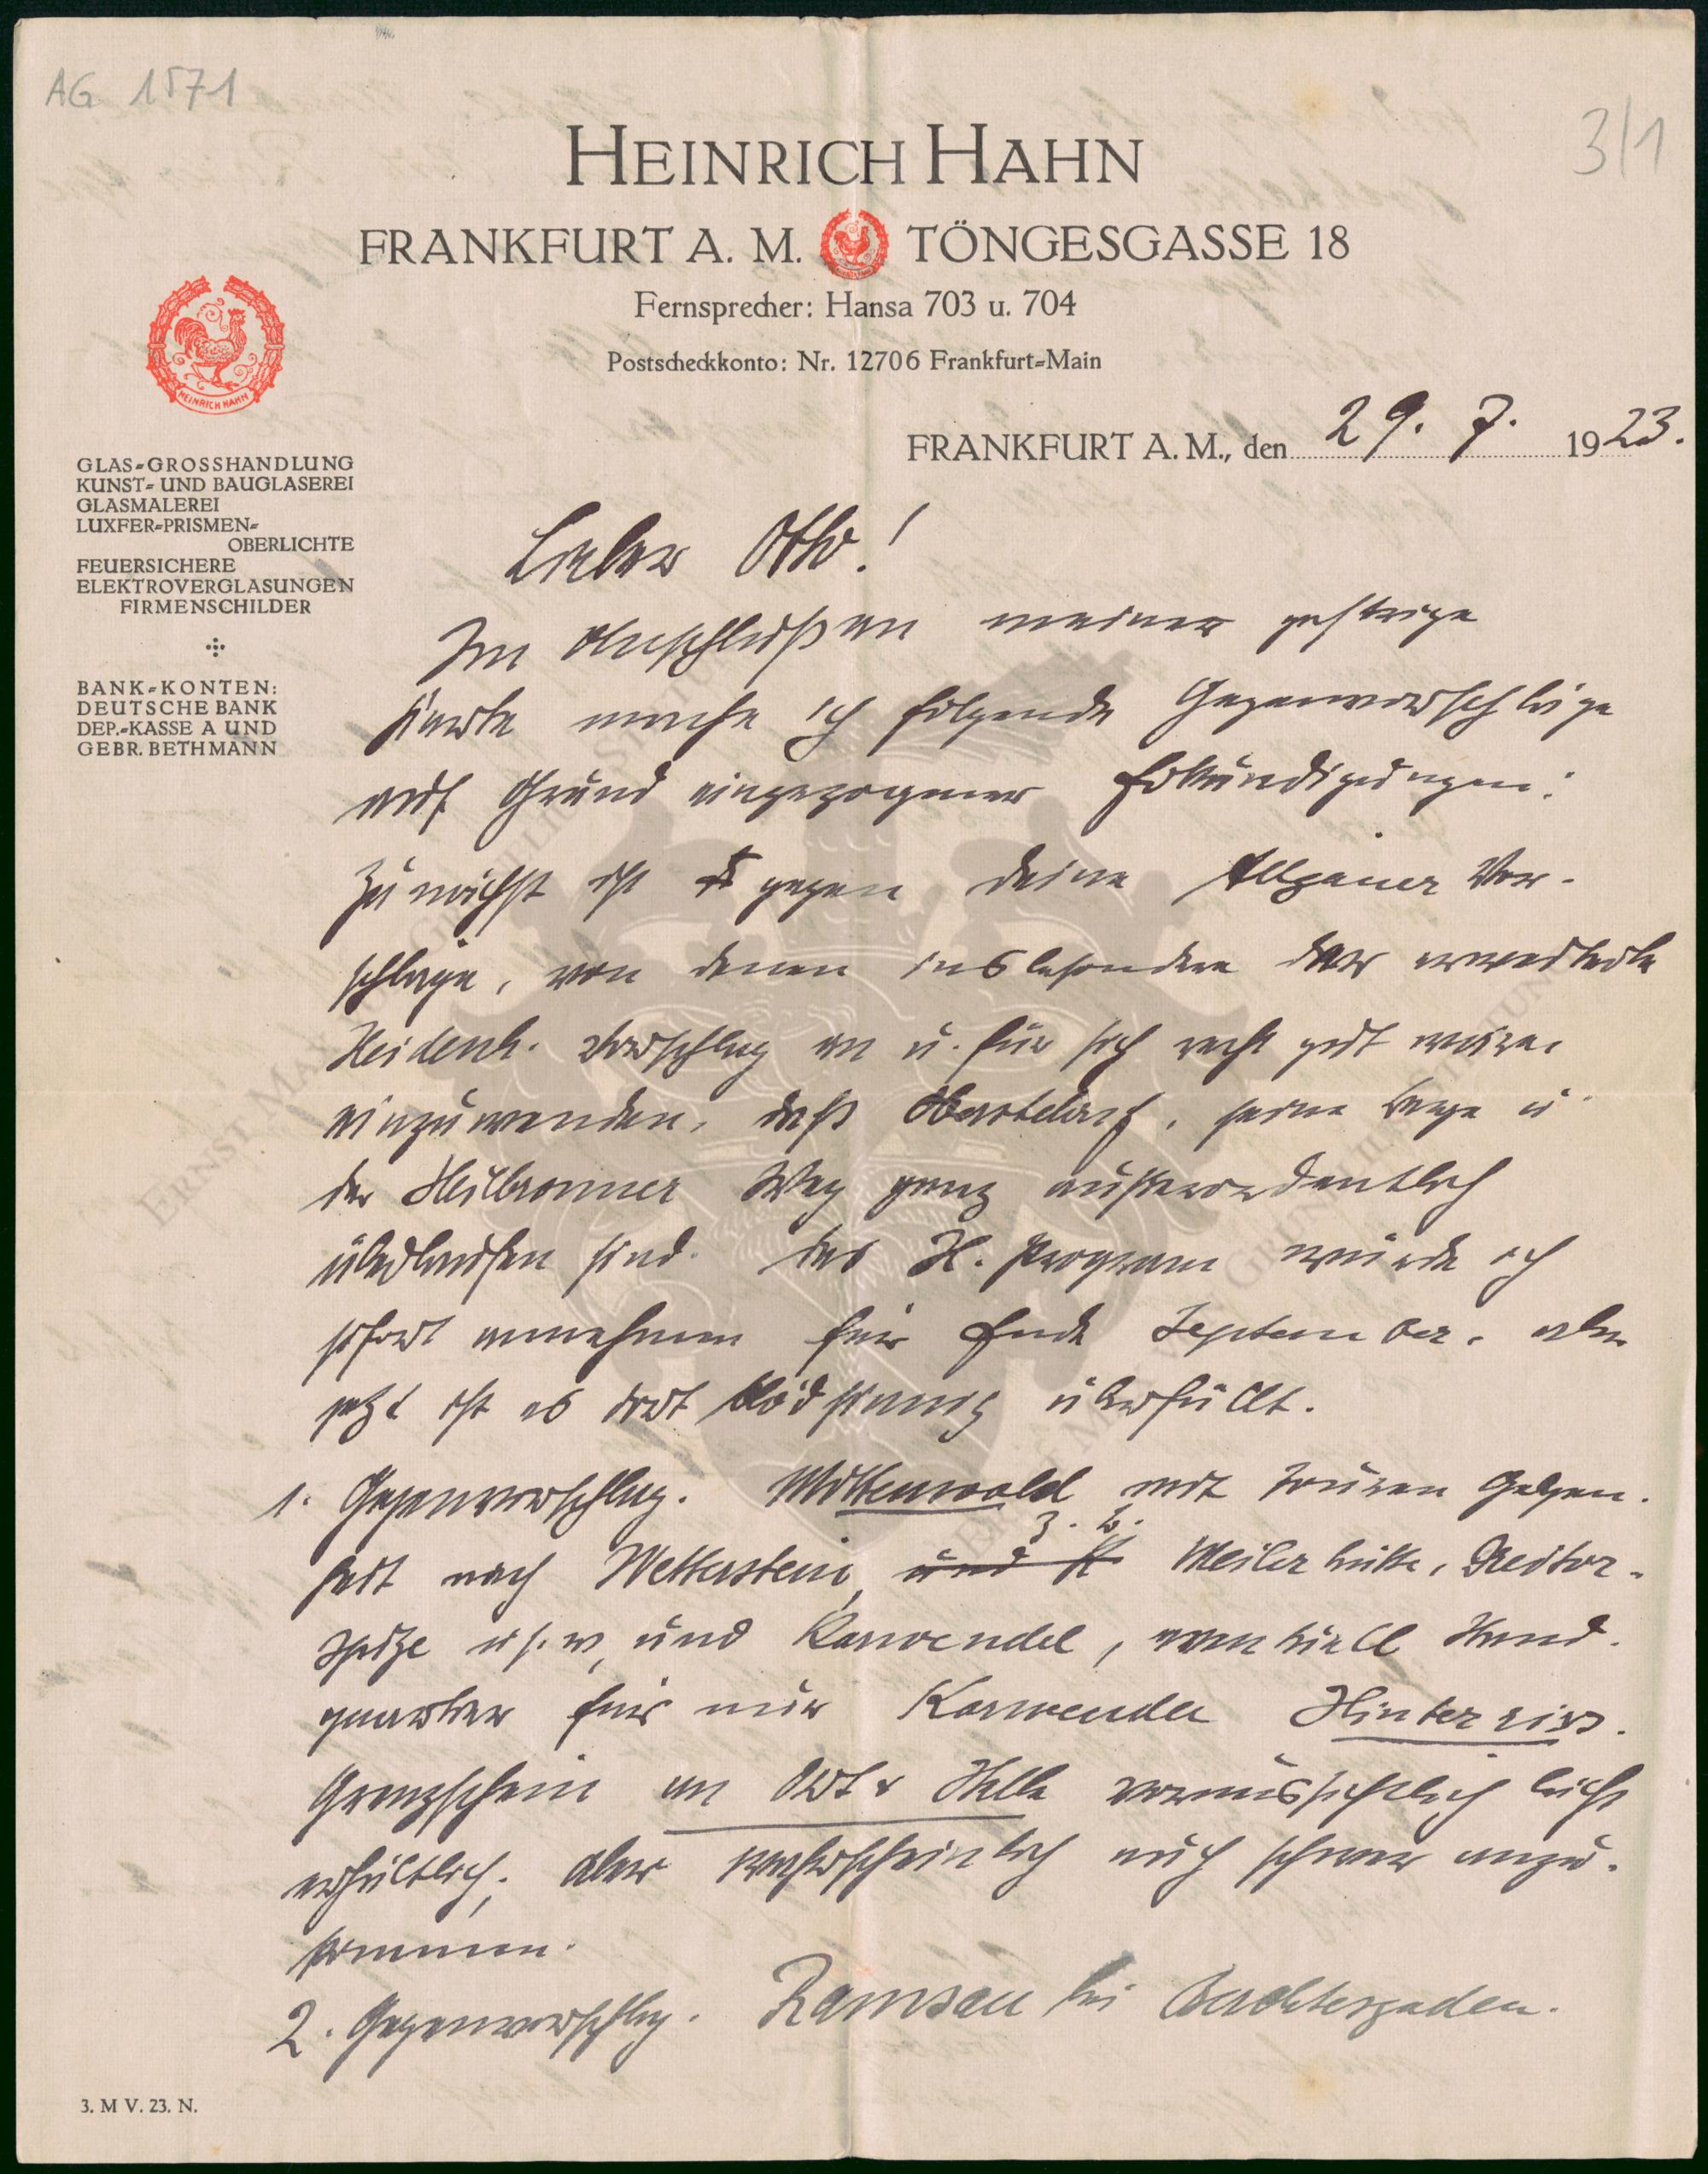 AG 1571
3/1
HEINRICH HAHN
FRANKFURT A. M. TÖNGESGASSE 18
Fernsprecher: Hansa 703 u. 704
Postscheckkonto: Nr. 12706 Frankfurt-Main
HEINRICH HAHN
FRANKFURT A. M., den 29. 7. 1923.
GLAS-GROSSHANDLUNG
KUNST- UND BAUGLASEREI
GLASMALEREI
LUXFER-PRISMEN-
OBERLICHTE
FEUERSICHERE
ELEKTROVERGLASUNGEN
FIRMENSCHILDER
BANK-KONTEN:
DEUTSCHE BANK
DEP.-KASSE A UND
GEBR. BETHMANN
Lieber Otto!
Im Anschluß an meiner gestrige
Karte mache ich folgende Gegenvorschläge
auf Grund eingezogener Erkundigungen:
Zunächst ist gegen deine Allgäuer Vor-
schläge, von denen insbesondere der
Heidenh. Vorschlag an u. für sich recht gut wäre,
einzuwenden, daß Oberstdorf, seine Berge u.
der Heilbronner Weg ganz außerordentlich
überlaufen sind. Das H. Program würde ich
sofort annehmen für Ende September, aber
jetzt ist es dort blödsinnig überfüllt.
1. Gegenvorschlag. Mittenwald mit Touren Gelegen-
heit nach Wetterstein, und z. B. Meilerhütte, Dreitor-
spitze u.s.w, und Karwendel, eventuell Stand-
quartier für nur Karwendel Hinterriss.
Grenzschein an Ort u. Stelle voraussichtlich leicht
erhältlich; aber wahrscheinlich auch schwer anzu-
kommen.
2. Gegenvorschlag. Ramsau bei Berchtesgaden.
3. M V. 23. N.